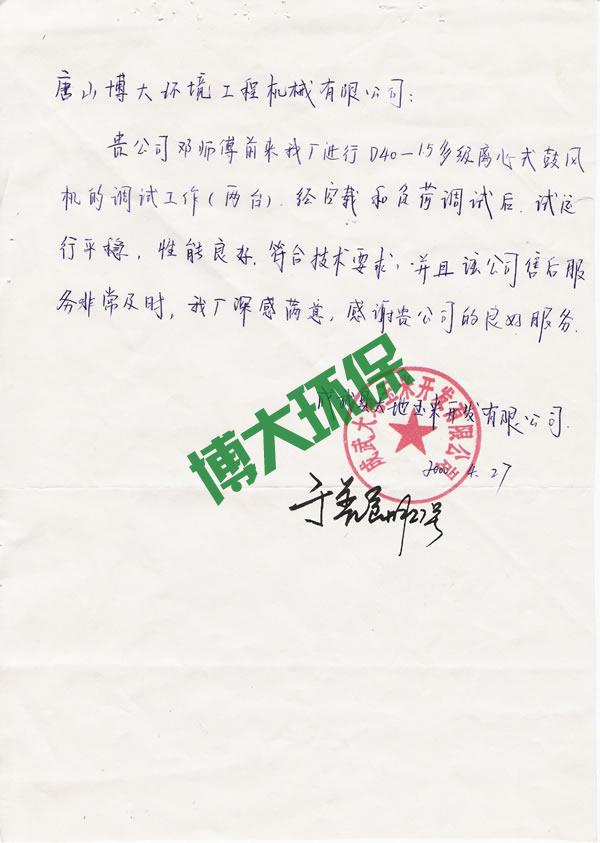 唐山博大环境工程机械有限公司:
贵公司邓师傅前来我厂进行D40-1.5多级离心式鼓风
机的调试工作(两台).经空载和负荷调试后.试运
行平稳,性能良好.符合技术要求,并且该公司售后服
务非常及时,我厂深感满意,感谢贵公司的良好服务.
博大环保
成武县大地玉米开发有限公司.
成武大 玉米开发有限公司
4.27
27号